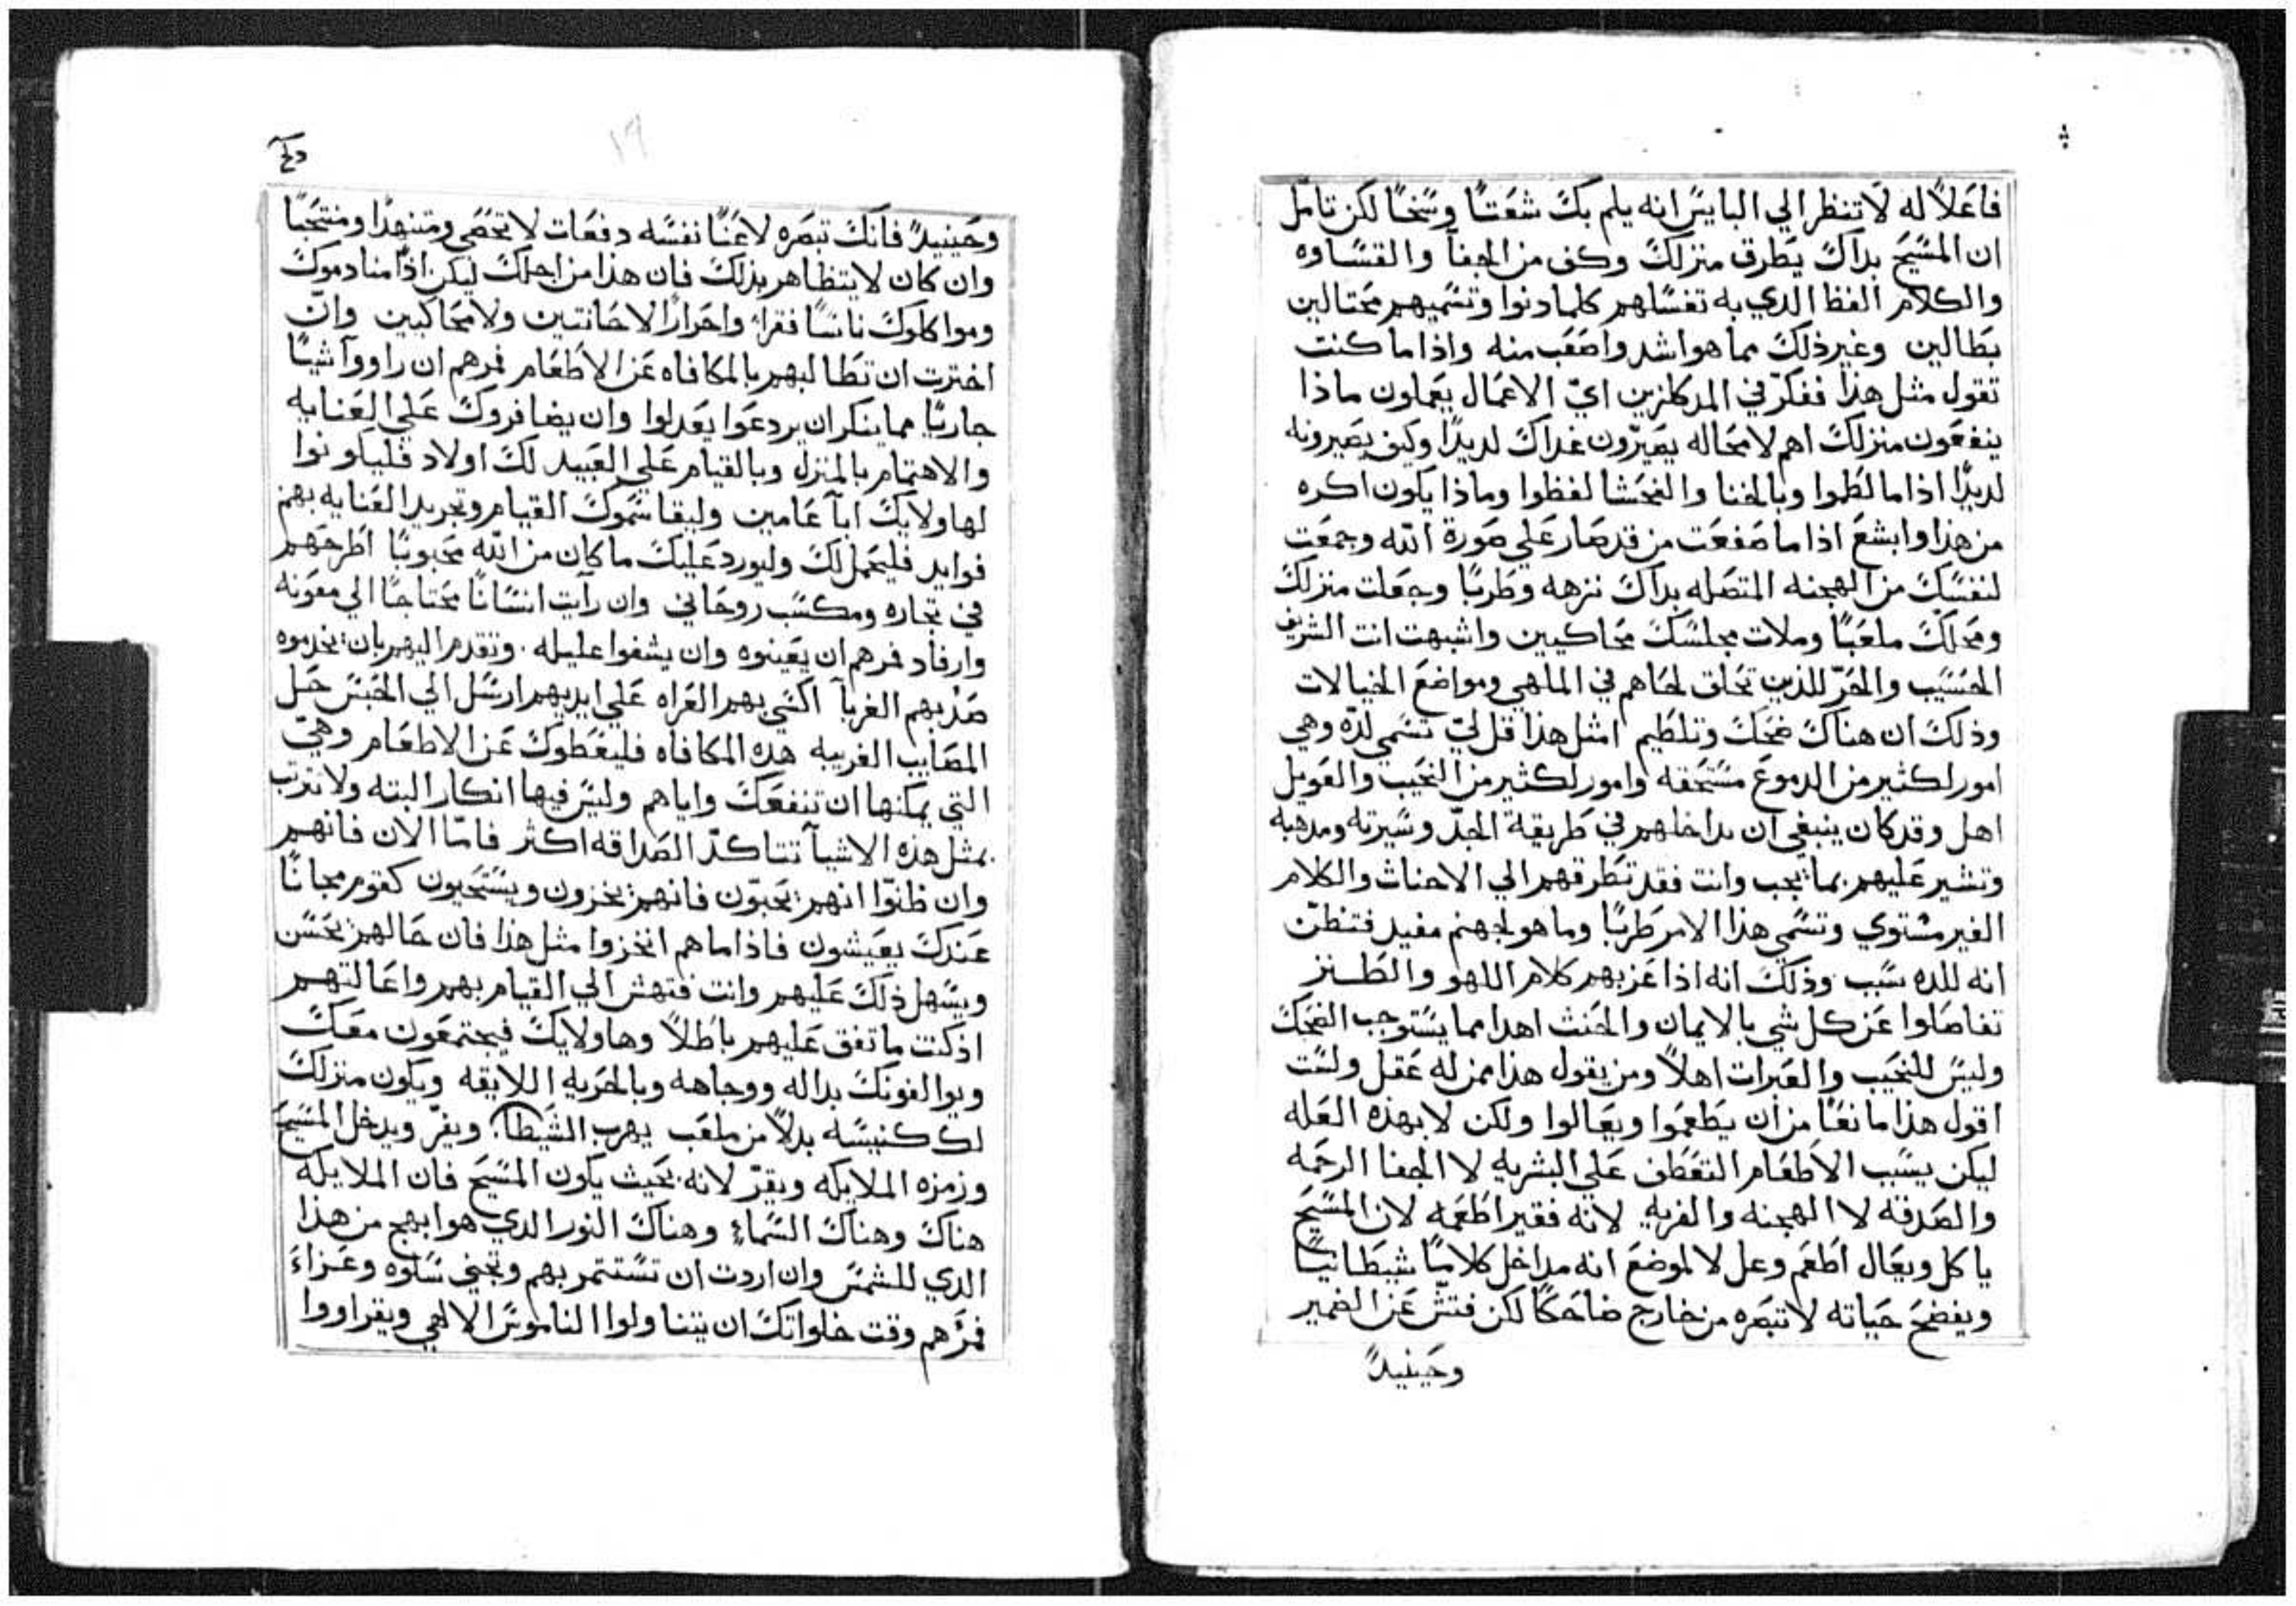 فاعلاً له لا تنظر الي البايس انه يلم بك شعتاً وسخاً لكن تامل
ان المسيح بداك يطرق منزلك وكف من الجفآ والقساوه
والكلام الفظ الدي به تغساهم كلما دنوا وتسميهم محتالين
بطالين وغير ذلك مما هو اشد واصعب منه واذا ما كنت
تقول مثل هذا ففكر في المدكلزين ايّ الاعمال يعملون ماذا
ينفعون منزلك اهم لا محاله يصيرّون غداك لديداً وكيف يصيرونه
لديداً اذا ما لطموا وبالخنا والفحشا لفظوا وماذا يكون اكره
من هذا وابشع اذا ما صفعت من قد صار علي صورة الله وجمعت
لنفسك من الهجنه المتصله بداك نزهه وطرباً وجعلت منزلك
ومحلك ملعباً وملات مجلسك محاكيين واشبهت انت الشريف
الحسيب والحرّ للذين تحلق لحاهم في الملهي ومواضع الخيالات
وذلك ان هناك ضحك وتلطيم امثل هذا قل ليّ تسمي لذّه وهي
امور لكثير من الدموع مستحقه وامور لكثير من النحيب والعويل
اهل وقد كان ينبغي ان تداخلهم في طريقة الجدّ وسيرته ومدهبه
وتشير عليهم بما يجب وانت فقد تطرقهم الي الاحناث والكلام
الغير مستوي وتسمي هذا الامر طرباً وما هو لجهنم مفيد فتظنّ
انه للده سبب وذلك انه اذا عز بهم كلام اللهو والطنز
تفاصلوا عن كل شي بالايمان والحنث اهدا مما يستوجب الضحك
وليس للنحيب والعبرات اهلاً ومن يقول هذا ممن له عقل ولست
اقول هذا مانعاً من ان يطعموا ويعالوا ولكن لا بهذه العله
ليكن بسبب الاطعام التعطف علي البشريه لا الجفا الرحمه
والصدقه لا الهجنه والفريه لانه فقير اطعمه لان المسيح
ياكل ويعال اطعم وعل لا لموضع انه مداخل كلاماً شيطانياً
ويفضح حياته لا تبصره من خارج ضاحكاً لكن فتش عن الضمير
وحينيداً
وحينيداً فانك تبصره لاعناً نفسه دفعات لا تحصي ومتنهداً ومنتحباً
وان كان لا يتظاهر بذلك فان هذا من اجلك ليكن اذاً منادموك
ومواكلوك ناساً فقرا واحراراً لا حانتين ولا محاكيين وانّ
اخترت ان تطالبهم بالمكافاه عن الاطعام فمرهم ان راووآ شياً
جارياً مما ينكر ان يردعوا يعدلوا وان يضافروك علي العنايه
والاهتمام بالمنزل وبالقيام علي العبيد لك اولاد فليكونوا
لهاولايك ابآ عامين وليقاسموك القيام وتجريد العنايه بهم
فوايد فليحمل لك وليورد عليك ما كان من الله محبوباً اطرحهم
في تجاره ومكسب روحاني وان رآيت انساناً محتاجاً الي معونه
وارفاد فمرهم ان يعينوه وان يشفوا عليله وتقدم اليهم بان يخدموه
صد بهم الغربآ اكسي بهم العراه علي ايديهم ارسل الي الحبس حل
المصايب الغريبه هده المكافاه فليعطوك عن الاطعام وهيّ
التي يمكنها ان تنفعك واياهم وليس فيها انكار البته ولا تدرب
بمثل هذه الاشيآ تتاكدّ الصداقه اكثر فامّا الان فانهم
وان ظنوّا انهم يحبوّن فانهم يخزون ويستحيون كقوم مجاناً
عندك يعيشون فاذا ما هم انخزوا مثل هذا فان حالهم يحسن
ويسهل ذلك عليهم وانت فتهش الي القيام بهم واعالتهم
اذ كنت ما تفق عليهم باطلاً وهاولايك فيجتمعون معك
ويوالفونك بداله ووجاهه وبالحريه اللايقه ويكون منزلك
لك كنيسه بدلاً من ملعب يهرب الشيطان ويفرّ ويدخل المسيح
وزمزه الملايكه ويقرّ لانه بحيث يكون المسيح فان الملايكه
هناك وهناك السماء وهناك النور الدي هو ابهج من هذا
الدي للشمس وان اردت ان تستتمر بهم وتجني سلوه وعزاء
فمرهم وقت خلواتك ان يتناولوا الناموس الالهي ويقراووا